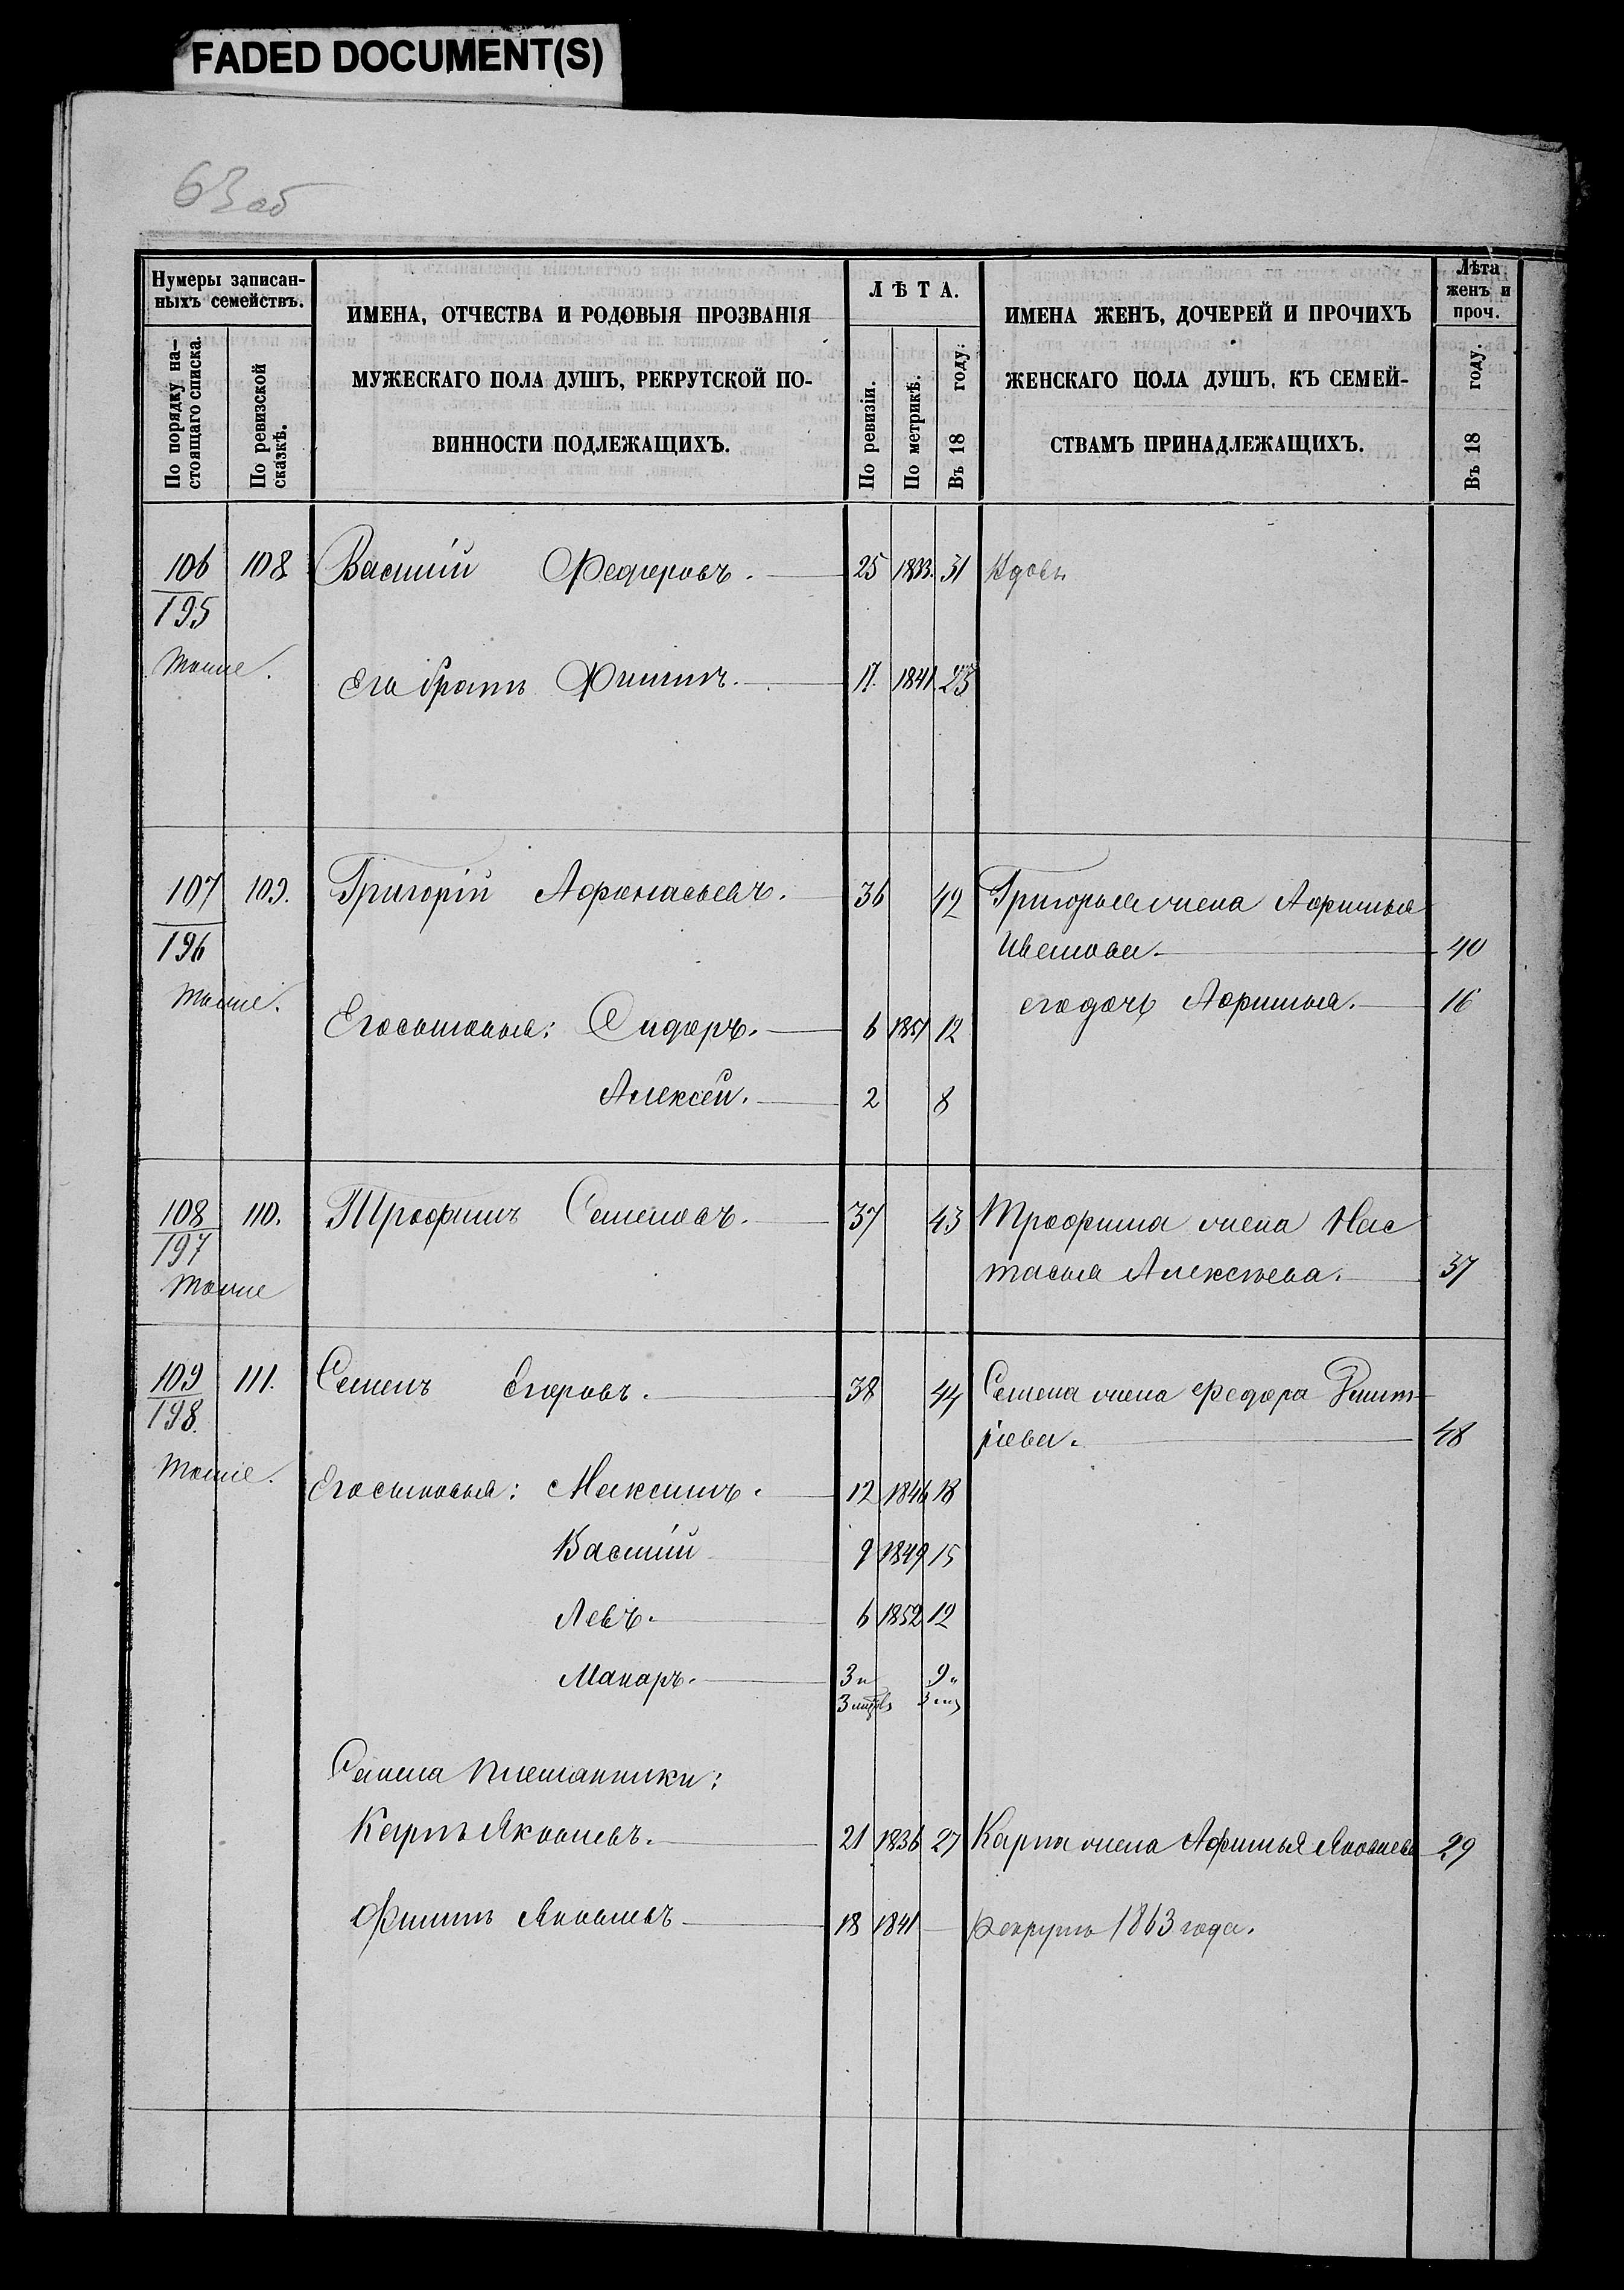 FADED DOCUMENT(S)
63 об
Нумеры записан-
ныхъ семействъ.
По порядку на-
стоящаго списка.
По ревизской
сказкѣ.
ИМЕНА, ОТЧЕСТВА И РОДОВЫЯ ПРОЗВАНІЯ
МУЖЕСКАГО ПОЛА ДУШЪ, РЕКРУТСКОЙ ПО-
ВИННОСТИ ПОДЛЕЖАЩИХЪ.
ЛѢТА.
По ревизіи.
По метрикѣ.
Въ 18 году.
ИМЕНА ЖЕНЪ, ДОЧЕРЕЙ И ПРОЧИХЪ
ЖЕНСКАГО ПОЛА ДУШЪ, КЪ СЕМЕЙ-
СТВАМЪ ПРИНАДЛЕЖАЩИХЪ.
Лѣта
женъ и
проч.
Въ 18 году.
106 108 Василій Федоровъ. 25 1833. 31 Вдовъ
195
тоже.
Его братъ Филипъ. 17. 1841 23
107 109. Григорій Афонасьевъ. 36 42 Григорья жена Афимья
196 40
тоже. его дочь Афимья. 16
Его сыновья: Сидоръ. 6 1851 12
Алексей. 2 8
108 110. Трофимъ Семеновъ. 37 43 Трофима жена Нас
197 тасья Алексѣева. 37
тоже
109 111. Семенъ Егоровъ. 38 44 Семена жена Федора Дмит-
198. ріева. 48
тоже.
Его сыновья: Максимъ. 12 1846 18
Василій 9 1849 15
Левъ. 6 1852 12
Макаръ. 3 и 9 и
3 мцов 3 мц
Семена племянники:
Карпъ Яковлевъ. 21 1836 27 Карпа жена Афимья Яковлева 29
Филипъ Яковлевъ 18 1841 — Рекрутъ 1863 года.